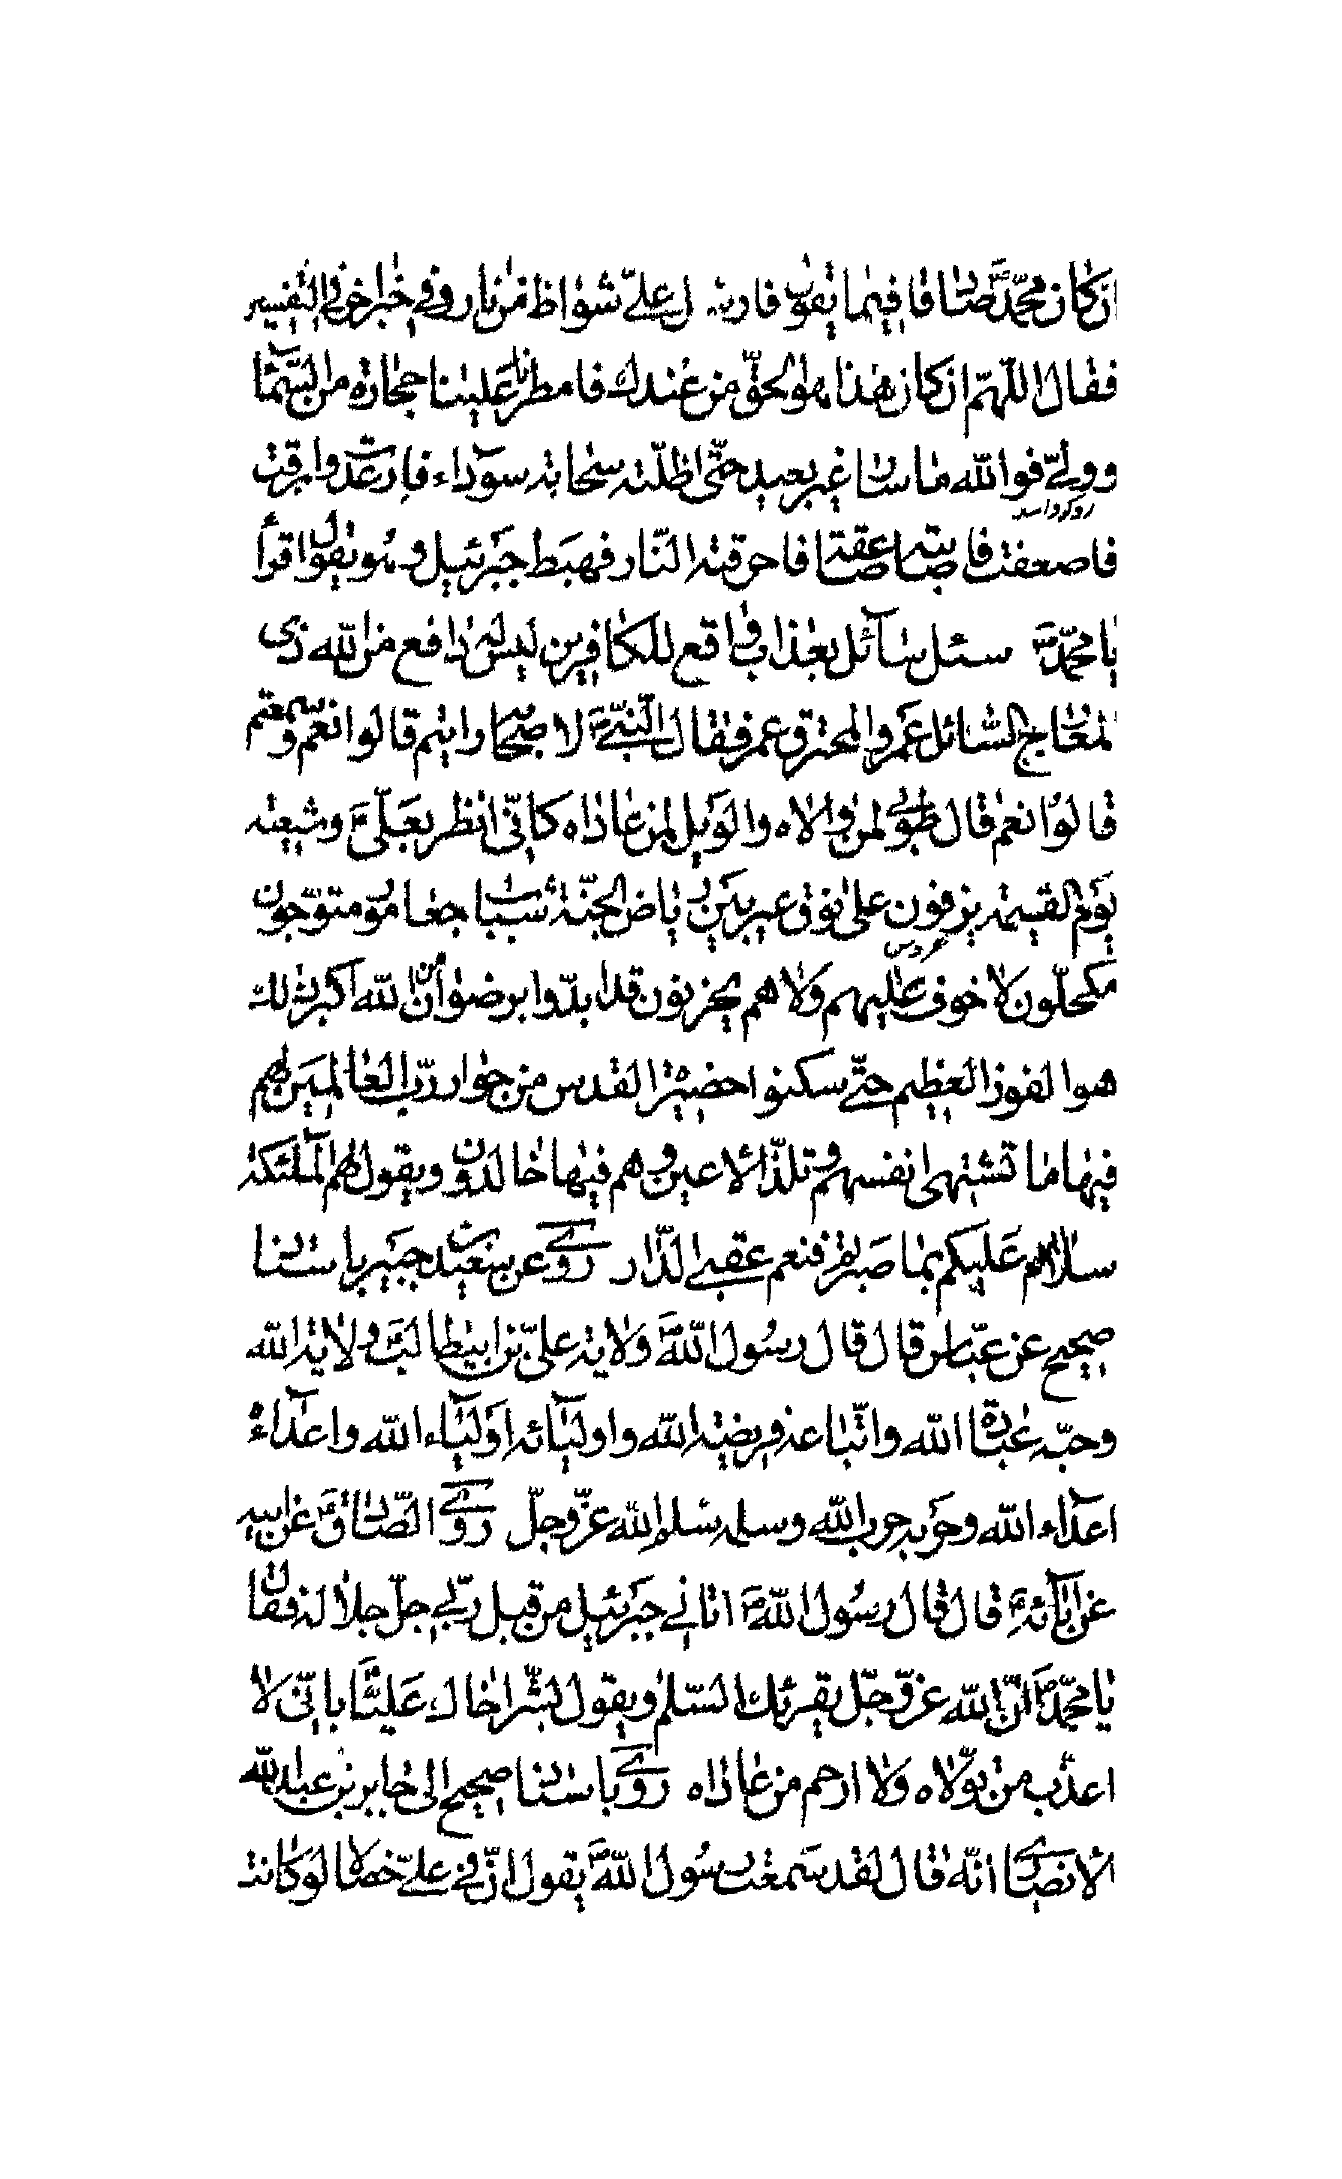 ان كان محمّد ص صادقا فيما يقول فارسل علىّ شواظ من نار وفي خبر اخر في التفسير
فقال اللّهمّ ان كان هذا هو الحقّ من عندك فامطر علينا حجارة من السّمآء
وولىّ فوالله ما سار غير بعيد حتّى اظلّته سحابة سوداء فارعدت وابرقت
فاصعقت فاصابته صاعقة فاحرقته النّار فهبط جبرئيل وهو يقول اقرأ
يا محمّد ص سئل سآئل بعذاب واقع للكافرين ليس له دافع من الله ذى
المعارج السّائل عمرو المحترق عمر فقال النّبيّ ص لاصحابه رايتم قالوا نعم وسمعتم
قالوا نعم قال طوبى لمن والاه والويل لمن عاداه كانّي انظر بعلىّ ع وشيعته
يوم القيمة يزفون على نوق عبر بين رياض الجنّة شباب جعامرّد متوّجون
مكحلّون لا خوف عليهم ولا هم يحزنون قد ايدّوا برضوان من الله اكبر ذلك
هوا لفوز العظيم حتّى سكنوا حضيرة القدس من جوار ربّ العالمين لهم
فيها ما تشتهى انفسهم وتلذّ الاعين وهم فيها خالدون ويقول لهم الملئكة
سلام عليكم بما صبرتم فنعم عقبى الدّار روى عن سعيد بن جبير باسناد
صحيح عن عبّاس قال قال رسول الله ص ولاية علىّ بن ابيطالب ع ولاية الله
وحبّه عبادة الله واتّباعه فريضة الله واوليائه اولياء الله واعداءه
اعداء الله وحربه حرب الله وسلمه سلم الله عزّ وجلّ روى الصّادق ع عن ابيه
عن آبائه ع قال قال رسول الله ص اتاني جبرئيل من قبل ربّي جلّ جلاله فقال
يا محمّد ص انّ الله عزّ وجلّ يقرئك السّلم ويقول بشّر اخاك عليّا باتّى لا
اعذّب من تولاه ولا ارحم من عاداه روى باسناد صحيح الى جابر بن عبد الله
الانصارى انّه قال لقد سمعت رسول الله ص يقول انّ في علىّ خصالا لو كانت